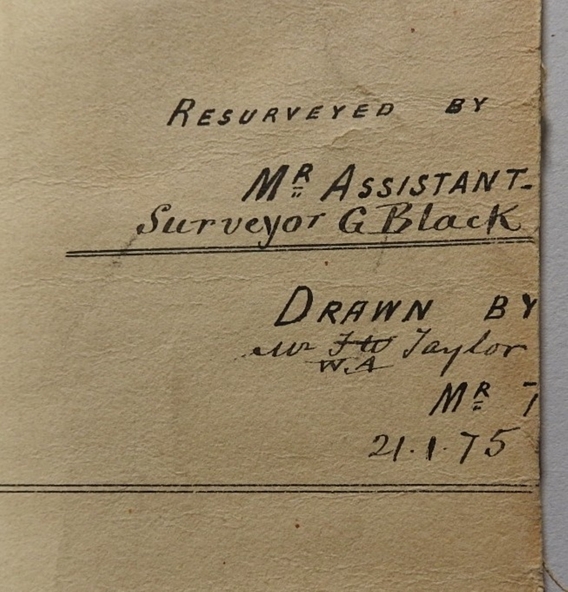 RESURVEYED BY
MR ASSISTANT-
Surveyor G Black
DRAWN BY
Mr Taylor
W.A
MR T
21.1.75